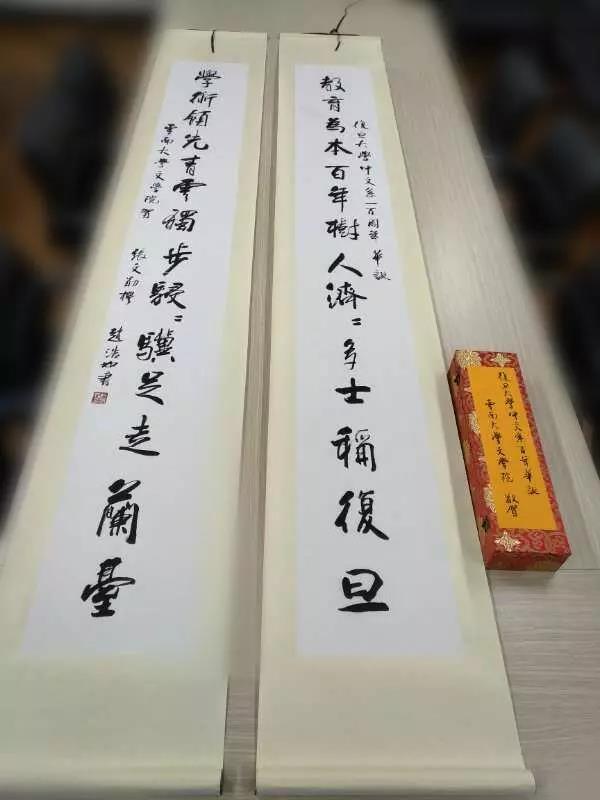 教育為本百年樹人濟〻多士稱復旦
復旦大學中文系一百周年 華誕
學術領先青雲獨步駸〻驥足走蘭臺
雲南大學文學院賀
張文勛撰
趙浩如書
復旦大學中文系百年華誕
雲南大學文學院 敬賀